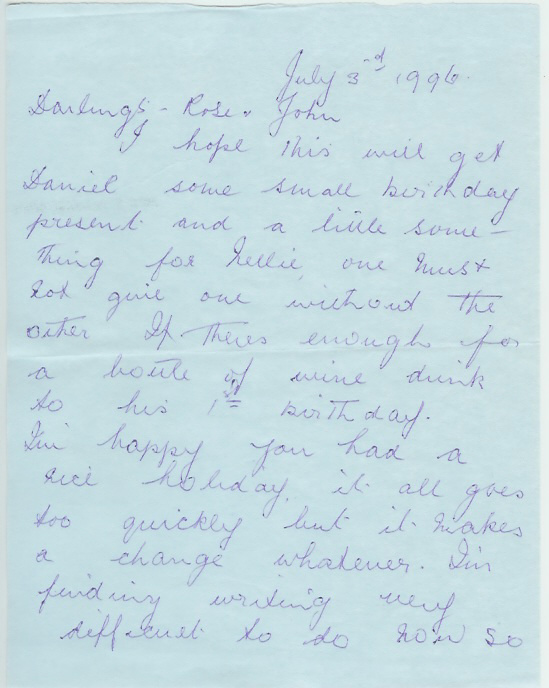 July 3rd 1996.
Darlings - Rose & John
I hope this will get
Daniel some small birthday
present and a little some-
thing for Nellie, one must
not give one without the
other If theres enough for
a bottle of wine drink
to his 1st birthday.
I'm happy you had a
nice holiday, it all goes
too quickly but it makes
a change whatever. I'm
finding writing very
difficult to do now so